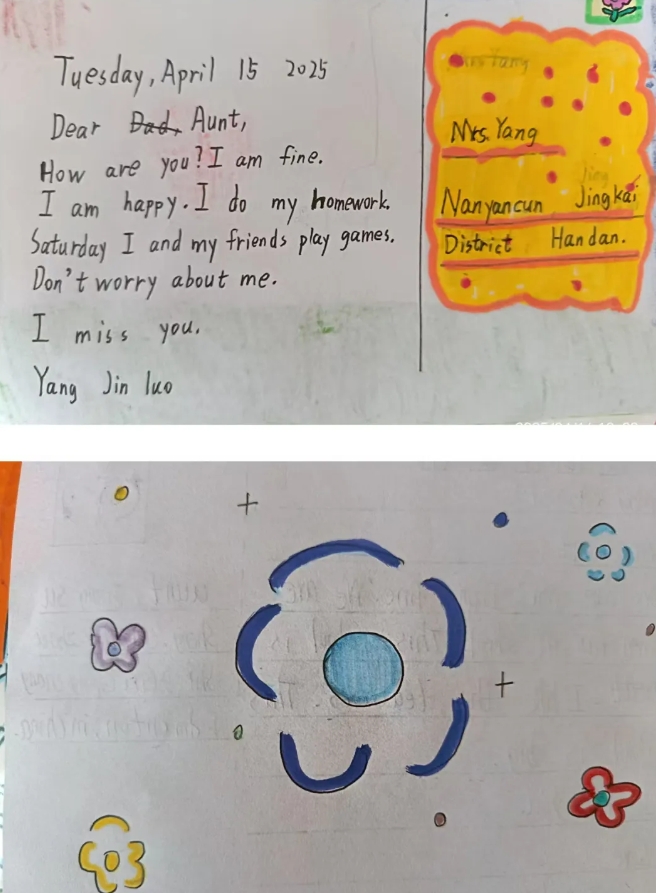 Tuesday, April 15 2025
Dear Dad, Aunt,
How are you? I am fine.
I am happy. I do my homework.
Saturday I and my friends play games.
Don't worry about me.
I miss you.
Yang Jin luo
Mrs. Yang
Nanyancun Jingkai
District Handan.